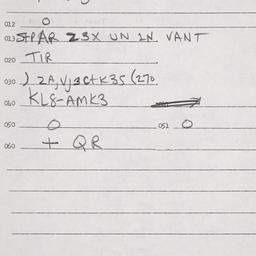 012 O
013 STPAR 23X UN IN VANT
020 TIR
030 ) 2A, Vj3C+K35 (270.
040 KL8-AMK3
050 O 051 O
060 + QR